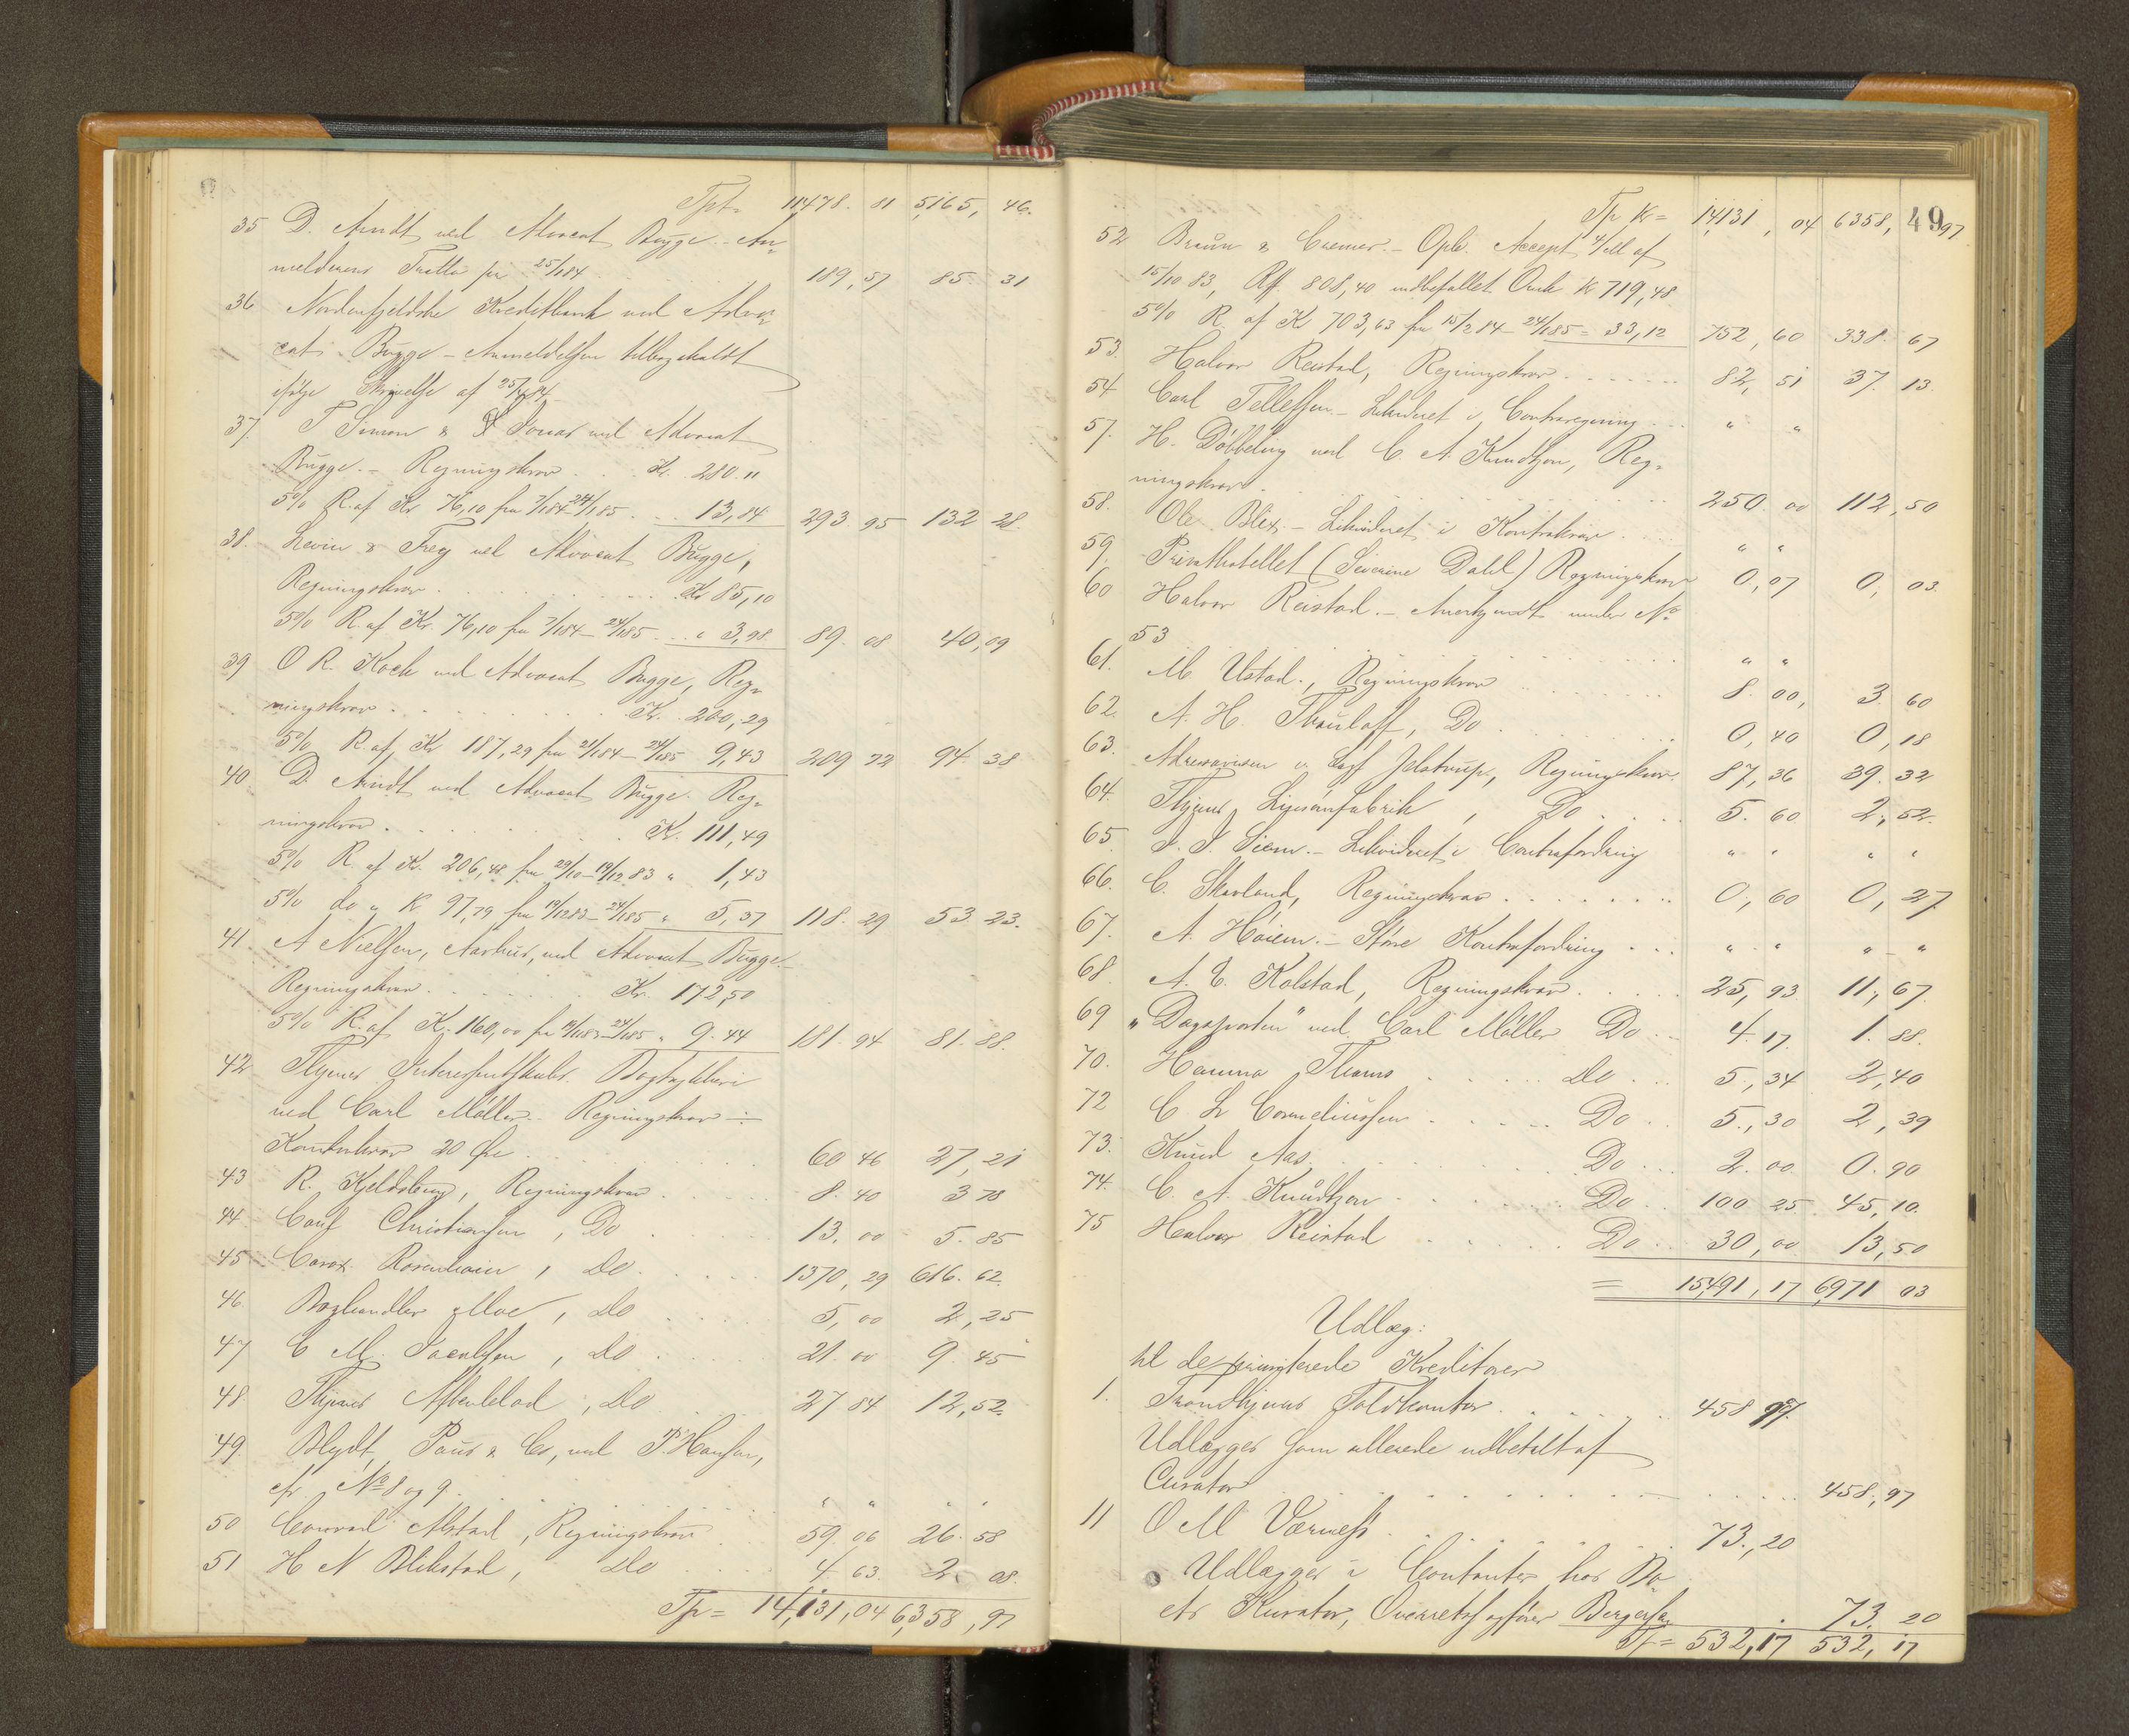 Tpt= 11478. 81 5,165, 46.
35 D. Arndt ved Advocat Bugge - An-
melderens Tratta pr 25/1 84 189,57 85. 31
36 Nordenfjeldske Kreditbank ved Advo-
cat Bugge - Anmeldelsen tilbagekaldt
ifølge Skrivelse af 25/4 84
37. T Simon & S Jonas ved Advocat
Bugge. - Regningskrav . . Kr. 280. "
5% R. af Kr 76,10 fra 7/1 84 - 24/1 85 . . 13,84 293. 95 132 28.
38. Levin & Frey ved Advocat Bugge,
Regningskrav . . . Kr 85,10
5% R. af Kr. 76,10 fra 7/1 84 - 24/1 85 . . " 3,98 89. 08 40,09
39 O R. Koch ved Advocat Bugge, Reg-
ningskrav . . . Kr. 200,29
5% R. af Kr 187,29 fra 21/1 84 - 24/1 85 9,43 209 72 94 38
40. D. Arndt ved Advocat Bugge. Reg-
ningskrav . . . Kr. 111,49
5% R. af Kr. 206,48 fra 29/10 - 19/12 83 " 1,43
5% do " Kr 97,79 fra 19/12 83 - 24/1 85 " 5,37 118. 29 53 23.
41. A Nielsen, Aarhus, ved Advocat Bugge. -
Regningskrav . . . Kr. 172,50
5% R. af Kr. 160,00 fra 24/1 85 " 9.44 181. 94 81. 88.
42 Thjems Interessentskabs Bogtrykkeri
ved Carl Möller - Regningskrav ÷
Kontrakrav 20 Øre . . . 60 46 27,21
43 R. Kjeldsberg, Regningskrav . . . 8. 40 3 78
44 Carl Christiansen, Do . . . 13. 00 5. 85
45 Carox Rosenhain, do . . . 1370,29 616. 62.
46 Boghandler Moe, do . . . 5,00 2,25
47 C M. Jacobsen, do . . . 21. 00 9. 45
48. Thjems Aftenblad, do . . . 27 84 12,52.
49. Blydt, Paus & Co, ved P. Hansen,
cfr. No 8 og 9 . . . " " " "
50 Conrad Alstad, Regningskrav 59. 06 26. 58
51 H N Blekstad, do . . . 4. 63. 2. 08.
Tp = 14,131,04 6,358,97
Tp Kr = 14,131, 04 6358, 97
49
52 Braün & Cremer. - Opl. Accept 4/ell af
15/10 83, Rf. 808,40 indbefattet Omk Kr 719,48
5% R. af Kr 703,63 fra 15/2 84 - 24/1 85 = 33,12 752,60 338. 67
53. Halvor Reistad, Regningskrav . . . 82,51 37. 13.
54 Carl Tellefsen - Likvideret i Contraregning . . " "
57. H. Döbbeling ved C. A. Knudtzon, Reg-
ningskrav . . . 250. 00 112,50
58. Ole Blix, - Likvideret i Kontrakrav . . " "
59. Privathotellet (Severine Dahl) Regningskrav 0,07 0, 03.
60 Halvor Reistad. - Anerkjendt under No
53 . . . " "
61. M. Ustad., Regningskrav . . . 8. 00, 3. 60
62. A. H. Thaulaff, Do . . . 0,40 0,18
63. Adresseavisen v Jelstrup, Regningskrav 87,36 39. 32
64. Thjems Ligesomfabrik, Do . . . 5. 60 2,52.
65. J. J. Siem. - Likvideret i Contrafordring " " " "
66. C. Skavland, Regningskrav . . . 0,60 0,27
67. A. Höiem. - Större Kontrafordring . . . " " " "
68. A. E. Kolstad, Regningskrav . . . 25,93 11,67.
69 "Dagsposten" ved Carl Möller Do . . 4. 17. 1. 88.
70. Hanna Thams . . . do . . 5,34 2,40
72 C. Lr Corneliussen . . . Do . . 5,30 2,39
73. Knud Aas . . . Do . . 2. 00. 0. 90
74. C. A. Knudtzon . . . Do . . 100 25. 45,10.
75 Halvor Reistad . . . Do . . 30,00 13,50
= 15,491,17 6,971 03
Udlæg:
til de priviterede Kreditorer
1. Trondhjems Toldkontor . . . 458 97.
Udlægges som allerede udbetalt af
Curator . . . 458,97
11 O M Værnes . . . 73,20
Udlægges i Contanter hos Bo-
ets Kurator, Overretssagfører Bergersen . 73. 20
Tp = 532,17 532,17